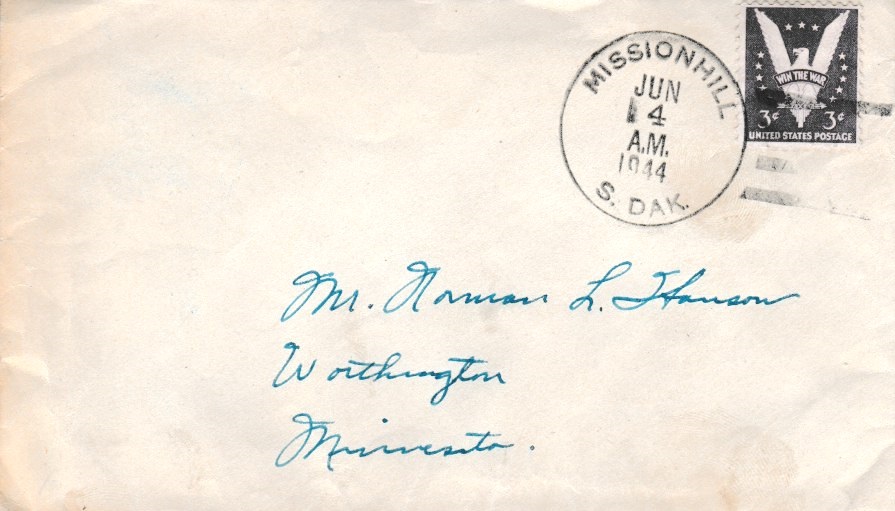 MISSIONHILL
JUN
14
A.M.
1944
S. DAK.
WIN THE WAR
3¢ 3¢
UNITED STATES POSTAGE
Mr. Norman L. Hanson
Worthington
Minnesota.